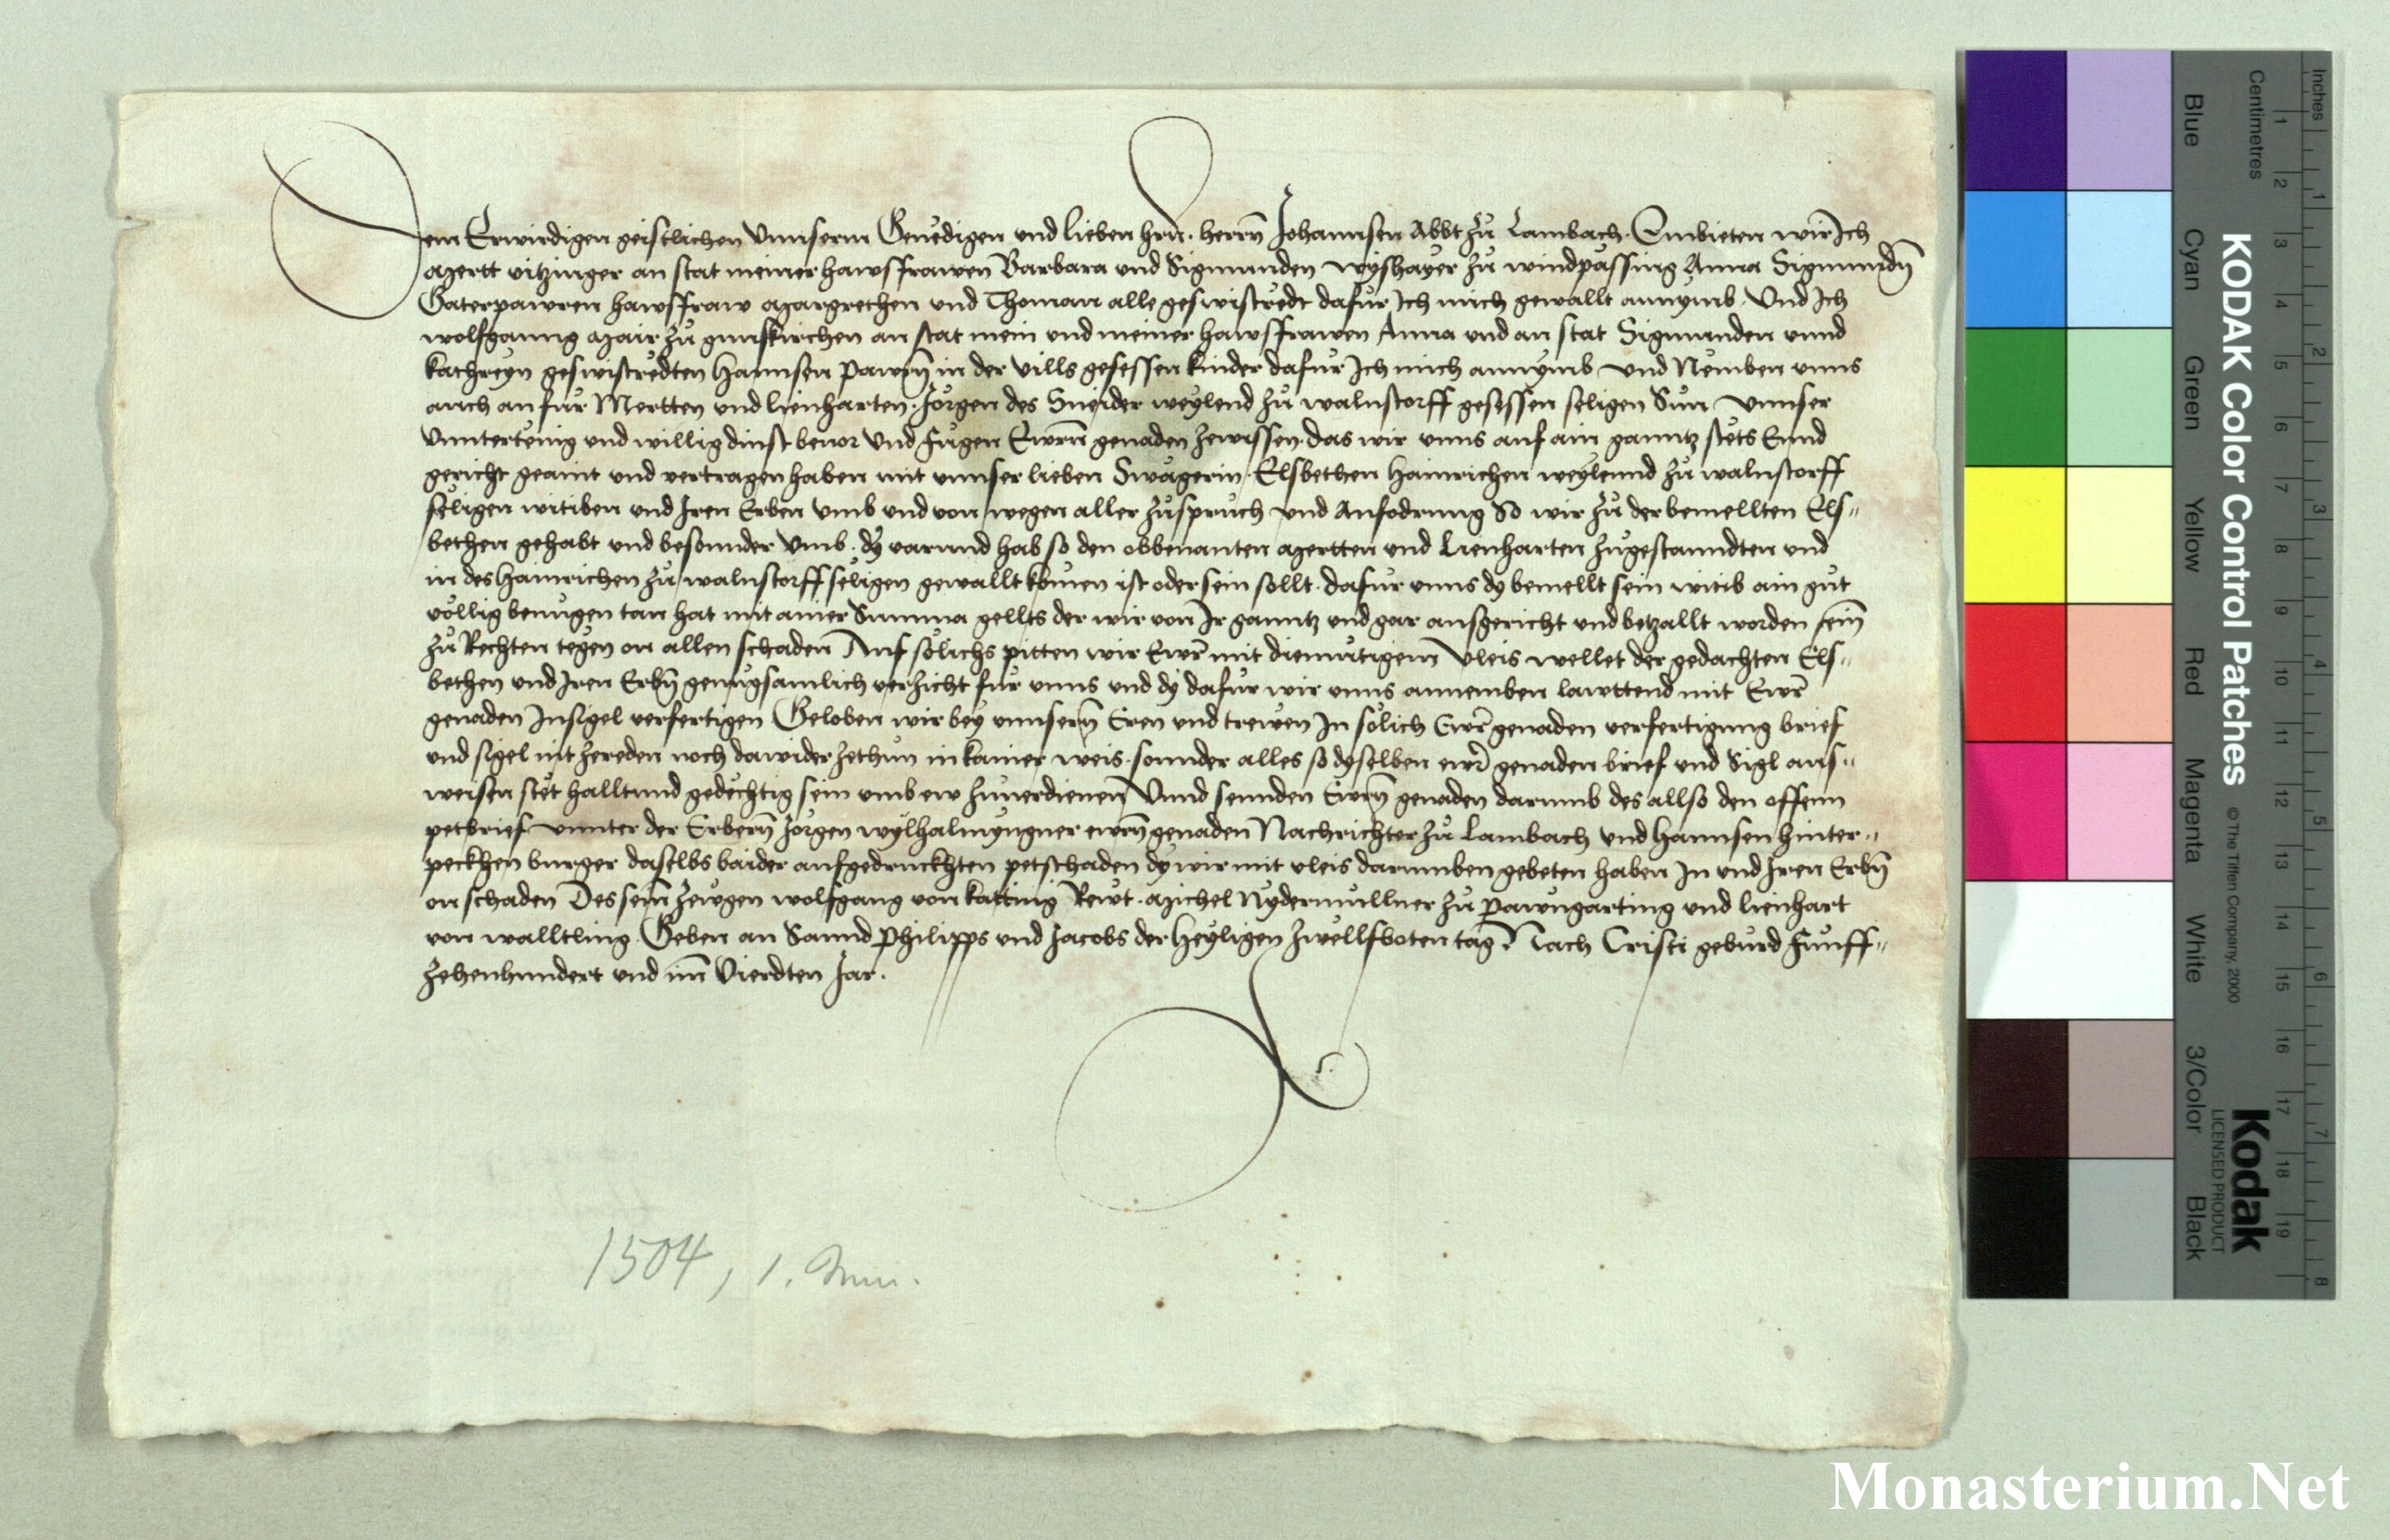 Dem Erwirdigen geistlichen Vnnserm Genedigen vnd lieben hrn. herrn Johannsen Abbt zu Lambach. Embieten wir Ich
Mertt vitzinger an stat meiner hawsfrawen Barbara vnd Sigmunden wyshayer zu windpassing Anna Sigmundn
Gaterpawren hawsfraw Margrethen vnd Thoman alle geswistredt dafur Ich mich gewallt annymb. Vnd Ich
wolfganng Mair zu gunskirchen an stat mein vnd meiner hawsfrawen Anna vnd an stat Sigmunden vnnd
kathreyn geswistredten Hannsen pawrn in der vills gesessen kinder dafur Ich mich annymb vnd Nemben vnns
auch an fur Mertten vnd lienharten. Jorgen des Sneider weylend zu walnstorff gesessen seligen Sun vnnser
Vnntertenig vnd willig dinst beuor Vnd fugen Ewrn genaden zewissen. das wir vnns auf ain ganntz stets Ennd
gericht geaint vnd vertragen haben mit vnnser lieben Swagerin. Elsbethen Hainrichen weylennd zu walnstorff
seligen witiben vnd Iren Erben vmb vnd von wegen aller zuspruch vnd Anfodrung So wir zu der bemellten Els„
bethen gehabt vnd besonnder vmb. dy varund hab so den obbenanten Mertten vnd Lienharten zugestanndten vnd
in des Hainrichen zu walnstorff seligen gewallt komen ist oder sein sollt. dafur vnns dy bemellt sein witib ain gut
vollig benugen tan hat mit ainer Summa gellts der wir von Ir ganntz vnd gar ausgericht vnd betzallt worden sein
zu Rechten tegen on allen schaden Auf solichs pitten wir Ewr mit diemutigem Vleis wellet der gedachten Els„
bethen vnd Iren Erbn genugsamlich verzicht fur vnns vnd dy dafur wir vnns annemben lawttend mit Ewr
genaden Insigel verfertigen Geloben wir bey vnnsern Eren vnd trewen In solich Ewr genaden verfertigung brief
vnd sigel nit zereden noch dawider zethun in kainer weis. sonnder alles so dyselben ewr genaden brief vnd Sigl aus„
weisen stet halltund gedechtig sein vmb ew zuuerdienen Vnnd sennden Ewrn genaden darumb des allso den offenn
petbrief vnnter der Erbern Jorgen wylhalmyngner ewrn genaden Nachrichter zu Lambach vnd Hannsen Hinter„
peckhen burger daselbs baider aufgedruckhten petschaden dy wir mit vleis darumben gebeten haben In vnd Iren Erbn
on schaden Des sein zewgen wolfgang von katting Rewt. Michel Nydermullner zu pawngarting vnd lienhart
von walltling. Geben an Sannd Philipps vnd Jacobs der Heyligen Zwellfboten tag. Nach Cristi geburd Funff„
zehenhundert vnd im Vierdten Jar.
1504, 1. Mai.
KODAK Color Control Patches
© The Tiffen Company, 2000
Kodak
LICENSED PRODUCT
Inches 1 2 3 4 5 6 7 8
Centimetres 1 2 3 4 5 6 7 8 9 10 11 12 13 14 15 16 17 18 19
Blue Cyan Green Yellow Red Magenta White 3/Color Black
Monasterium.Net